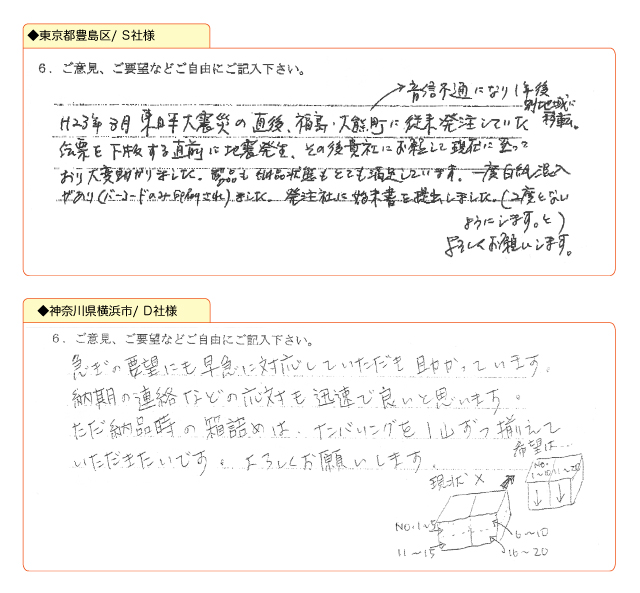 ◆東京都豊島区/ S社様
6．ご意見、ご要望などご自由にご記入下さい。
→音信不通になり1年後
別地域に
移転。
H23年3月 東日本大震災の直後、福島・大熊町に従来発注していた
伝票を下版する直前に地震発生、その後貴社にお願いして現在に至って
おり大変助かりました。製品も納品状態もとても満足しています。一度白紙混入
があり(バーコードのみ印刷され)ました。発注社に始末書を提出しました。(2度とない
ようにします。と)
よろしくお願いします。
◆神奈川県横浜市/ D社様
6．ご意見、ご要望などご自由にご記入下さい。
急ぎの要望にも早急に対応していただき助かっています。
納期の連絡などの応対も迅速で良いと思います。
ただ納品時の箱詰めは、ナンバリングを1山ずつ揃えて
いただきたいです。よろしくお願いします。
希望は…
現状 ×
No.
1～10 11～20
No.1～5
6～10
11～15
16～20